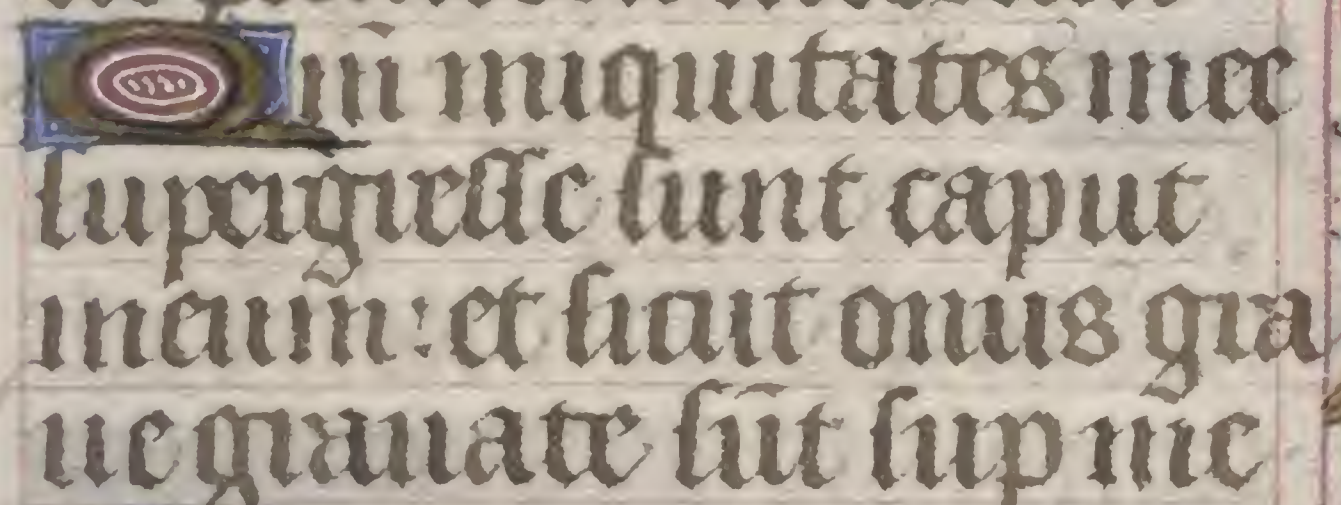 Qm̄ iniquitates mee
ſupergreſſe ſunt caput
meum: et ſicut onus gra
ue grauate ſūt ſup me